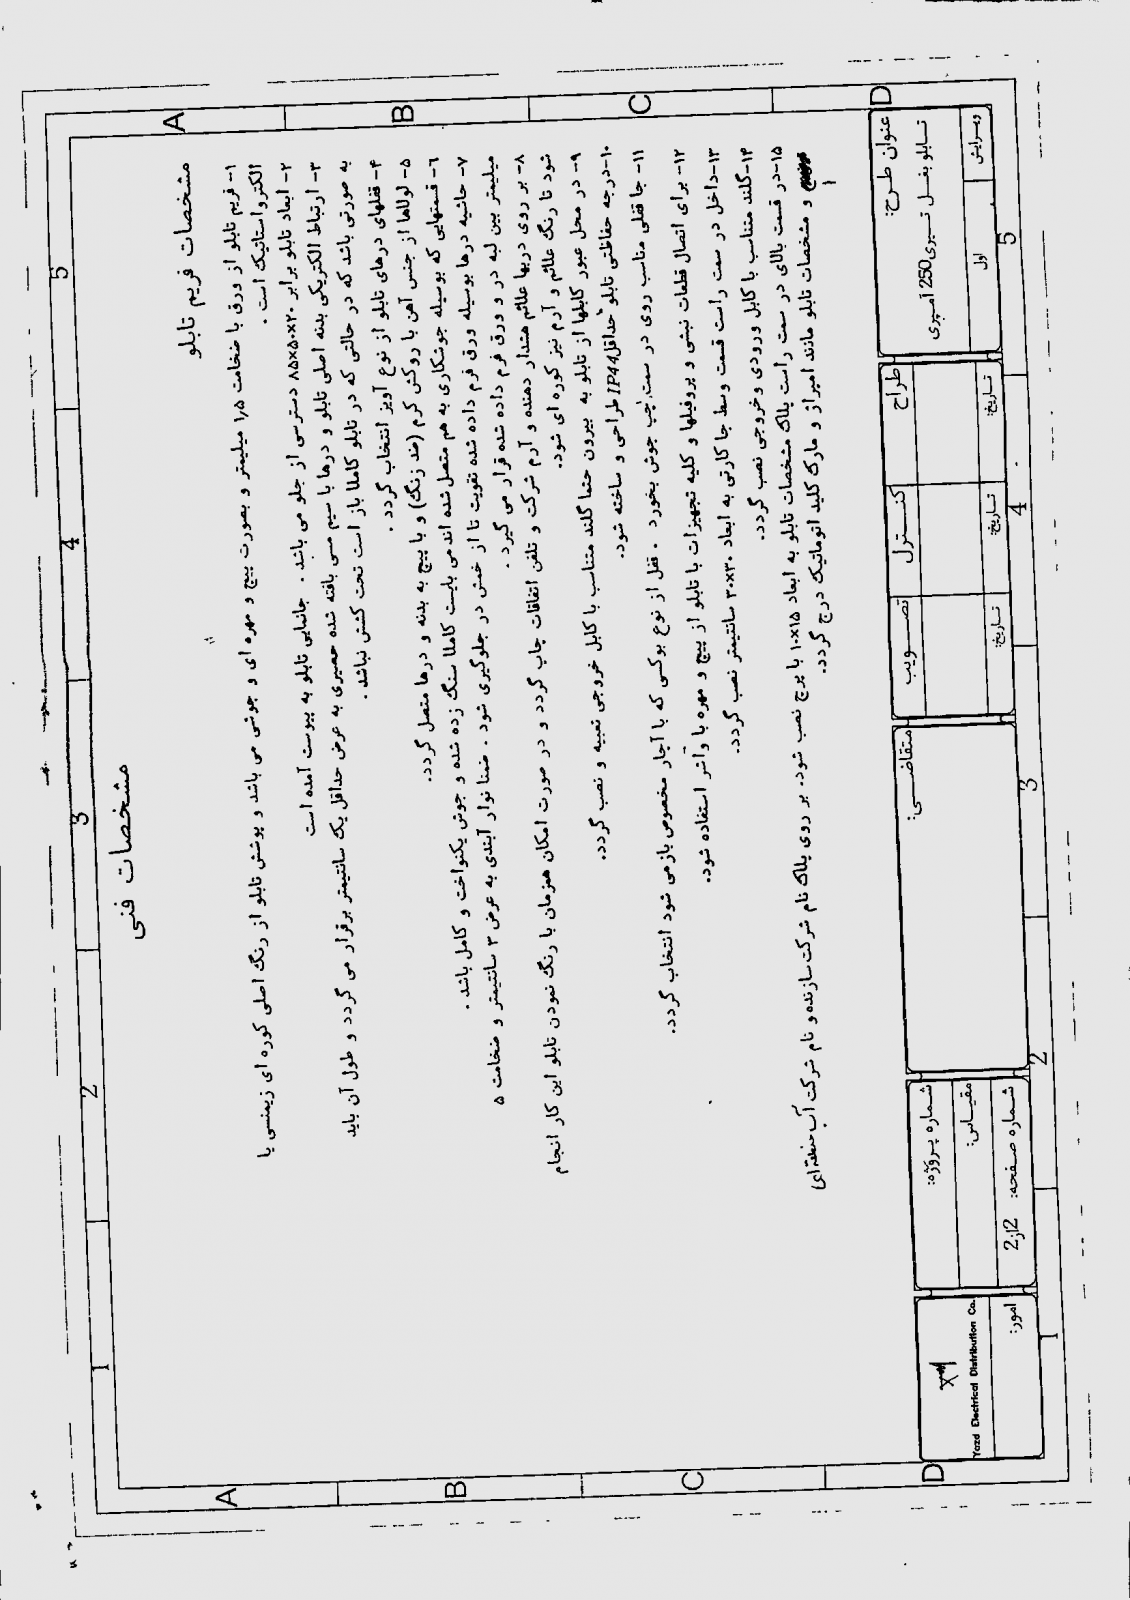 مشخصات فنی
مشخصات فریم تابلو
۱- فریم تابلو از ورق با ضخامت ۱٫۵ میلیمتر و بصورت پیچ و مهره ای و جوشی می باشد و پوشش تابلو از رنگ اصلی کوره ای زیمنسی یا
الکترواستاتیک است .
۲- ابعاد تابلو برابر ۸۵×۵۰×۲۰ دسترسی از جلو می باشد . جانمایی تابلو به پیوست آمده است
۳- ارتباط الکتریکی بدنه اصلی تابلو و درها با سیم مسی بافته شده حصیری به عرض حداقل یک سانتیمتر برقرار می گردد و طول آن باید
به صورتی باشد که در حالتی که در تابلو کاملا باز است تحت کشش نباشد .
۴- قفلهای درهای تابلو از نوع آویز انتخاب گردد .
۵- لولاها از جنس آهن با روکش کرم (ضد زنگ) و با پیچ به بدنه و درها متصل گردد.
۶- قسمتهایی که بوسیله جوشکاری به هم متصل شده اند می بایست کاملا سنگ زده شده و جوش یکنواخت و کامل باشد .
۷- حاشیه درها بوسیله ورق فرم داده شده تقویت تا از خمش در جلوگیری شود . ضمنا نوار آبندی به عرض ۳ سانتیمتر و ضخامت ۵
میلیمتر بین لبه در و ورق فرم داده شده قرار می گیرد .
۸- بر روی دربها علائم هشدار دهنده و آرم شرکت و تلفن اتفاقات چاپ گردد و در صورت امکان همزمان با رنگ نمودن تابلو این کار انجام
شود تا رنگ علائم و آرم نیز کوره ای شود.
۹- در محل عبور کابلها از تابلو به بیرون حتما گلند متناسب با کابل خروجی تعبیه و نصب گردد.
۱۰-درجه حفاظتی تابلو حداقل IP44 طراحی و ساخته شود.
۱۱- جا قفلی مناسب روی در سمت چپ جوش بخورد . قفل از نوع بوکسی که با آچار مخصوص باز می شود انتخاب گردد.
۱۲- برای اتصال قطعات نبشی و پروفیلها و کلیه تجهیزات با تابلو از پیچ و مهره با واشر استفاده شود.
۱۳-داخل در سمت راست قسمت وسط جا کارتی به ابعاد ۳۰×۲۰ سانتیمتر نصب گردد.
۱۴-گلند متناسب با کابل ورودی و خروجی نصب گردد.
۱۵-در قسمت بالای در سمت راست پلاک مشخصات تابلو به ابعاد ۱۵×۱۰ با پرچ نصب شود. بر روی پلاک نام شرکت سازنده و نام شرکت آب منطقه ای
و مشخصات تابلو مانند آمپراژ و مارک کلید اتوماتیک درج گردد.
عنوان طرح:
تابلو بغل تیری 250 آمپری
ویرایش
اول
طراح
کنترل
تصویب
تاریخ:
تاریخ:
تاریخ:
متقاضی:
شماره پروژه:
مقیاس:
شماره صفحه: 2از2
Yazd Electrical Distribution Co.
امور:
A B C D
A B C D
5 4 3 2 1
5 4 3 2 1